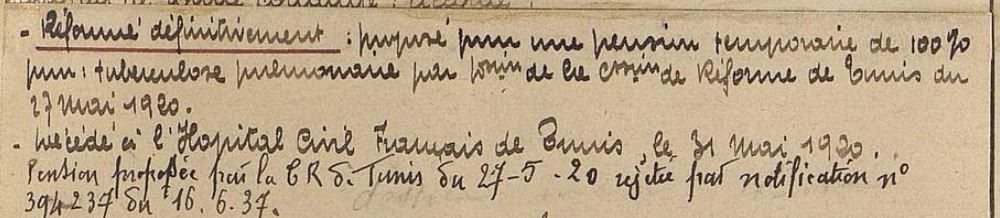 - Réformé définitivement : proposé pour une pension temporaire de 100%
pour : tuberculose pulmonaire par de la Con de Réforme de Tunis du
27 mai 1920.
- Décédé à l'Hopital Civil Français de Tunis, le 31 mai 1920.
Pension proposée par la CR de Tunis du 27-5-20 rejetée par notification n°
394237 du 16.6.37.